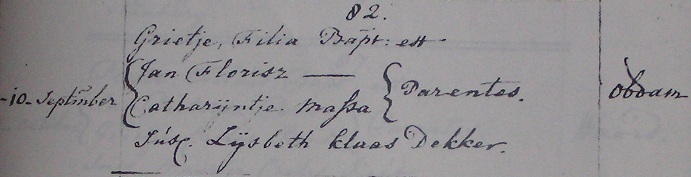 82.
Grietje, Filia Bapt: est
Jan Florisz —
-10- September Catharijntje Massa Parentes. obdam
Susc. Lijsbeth Klaas Dekker.